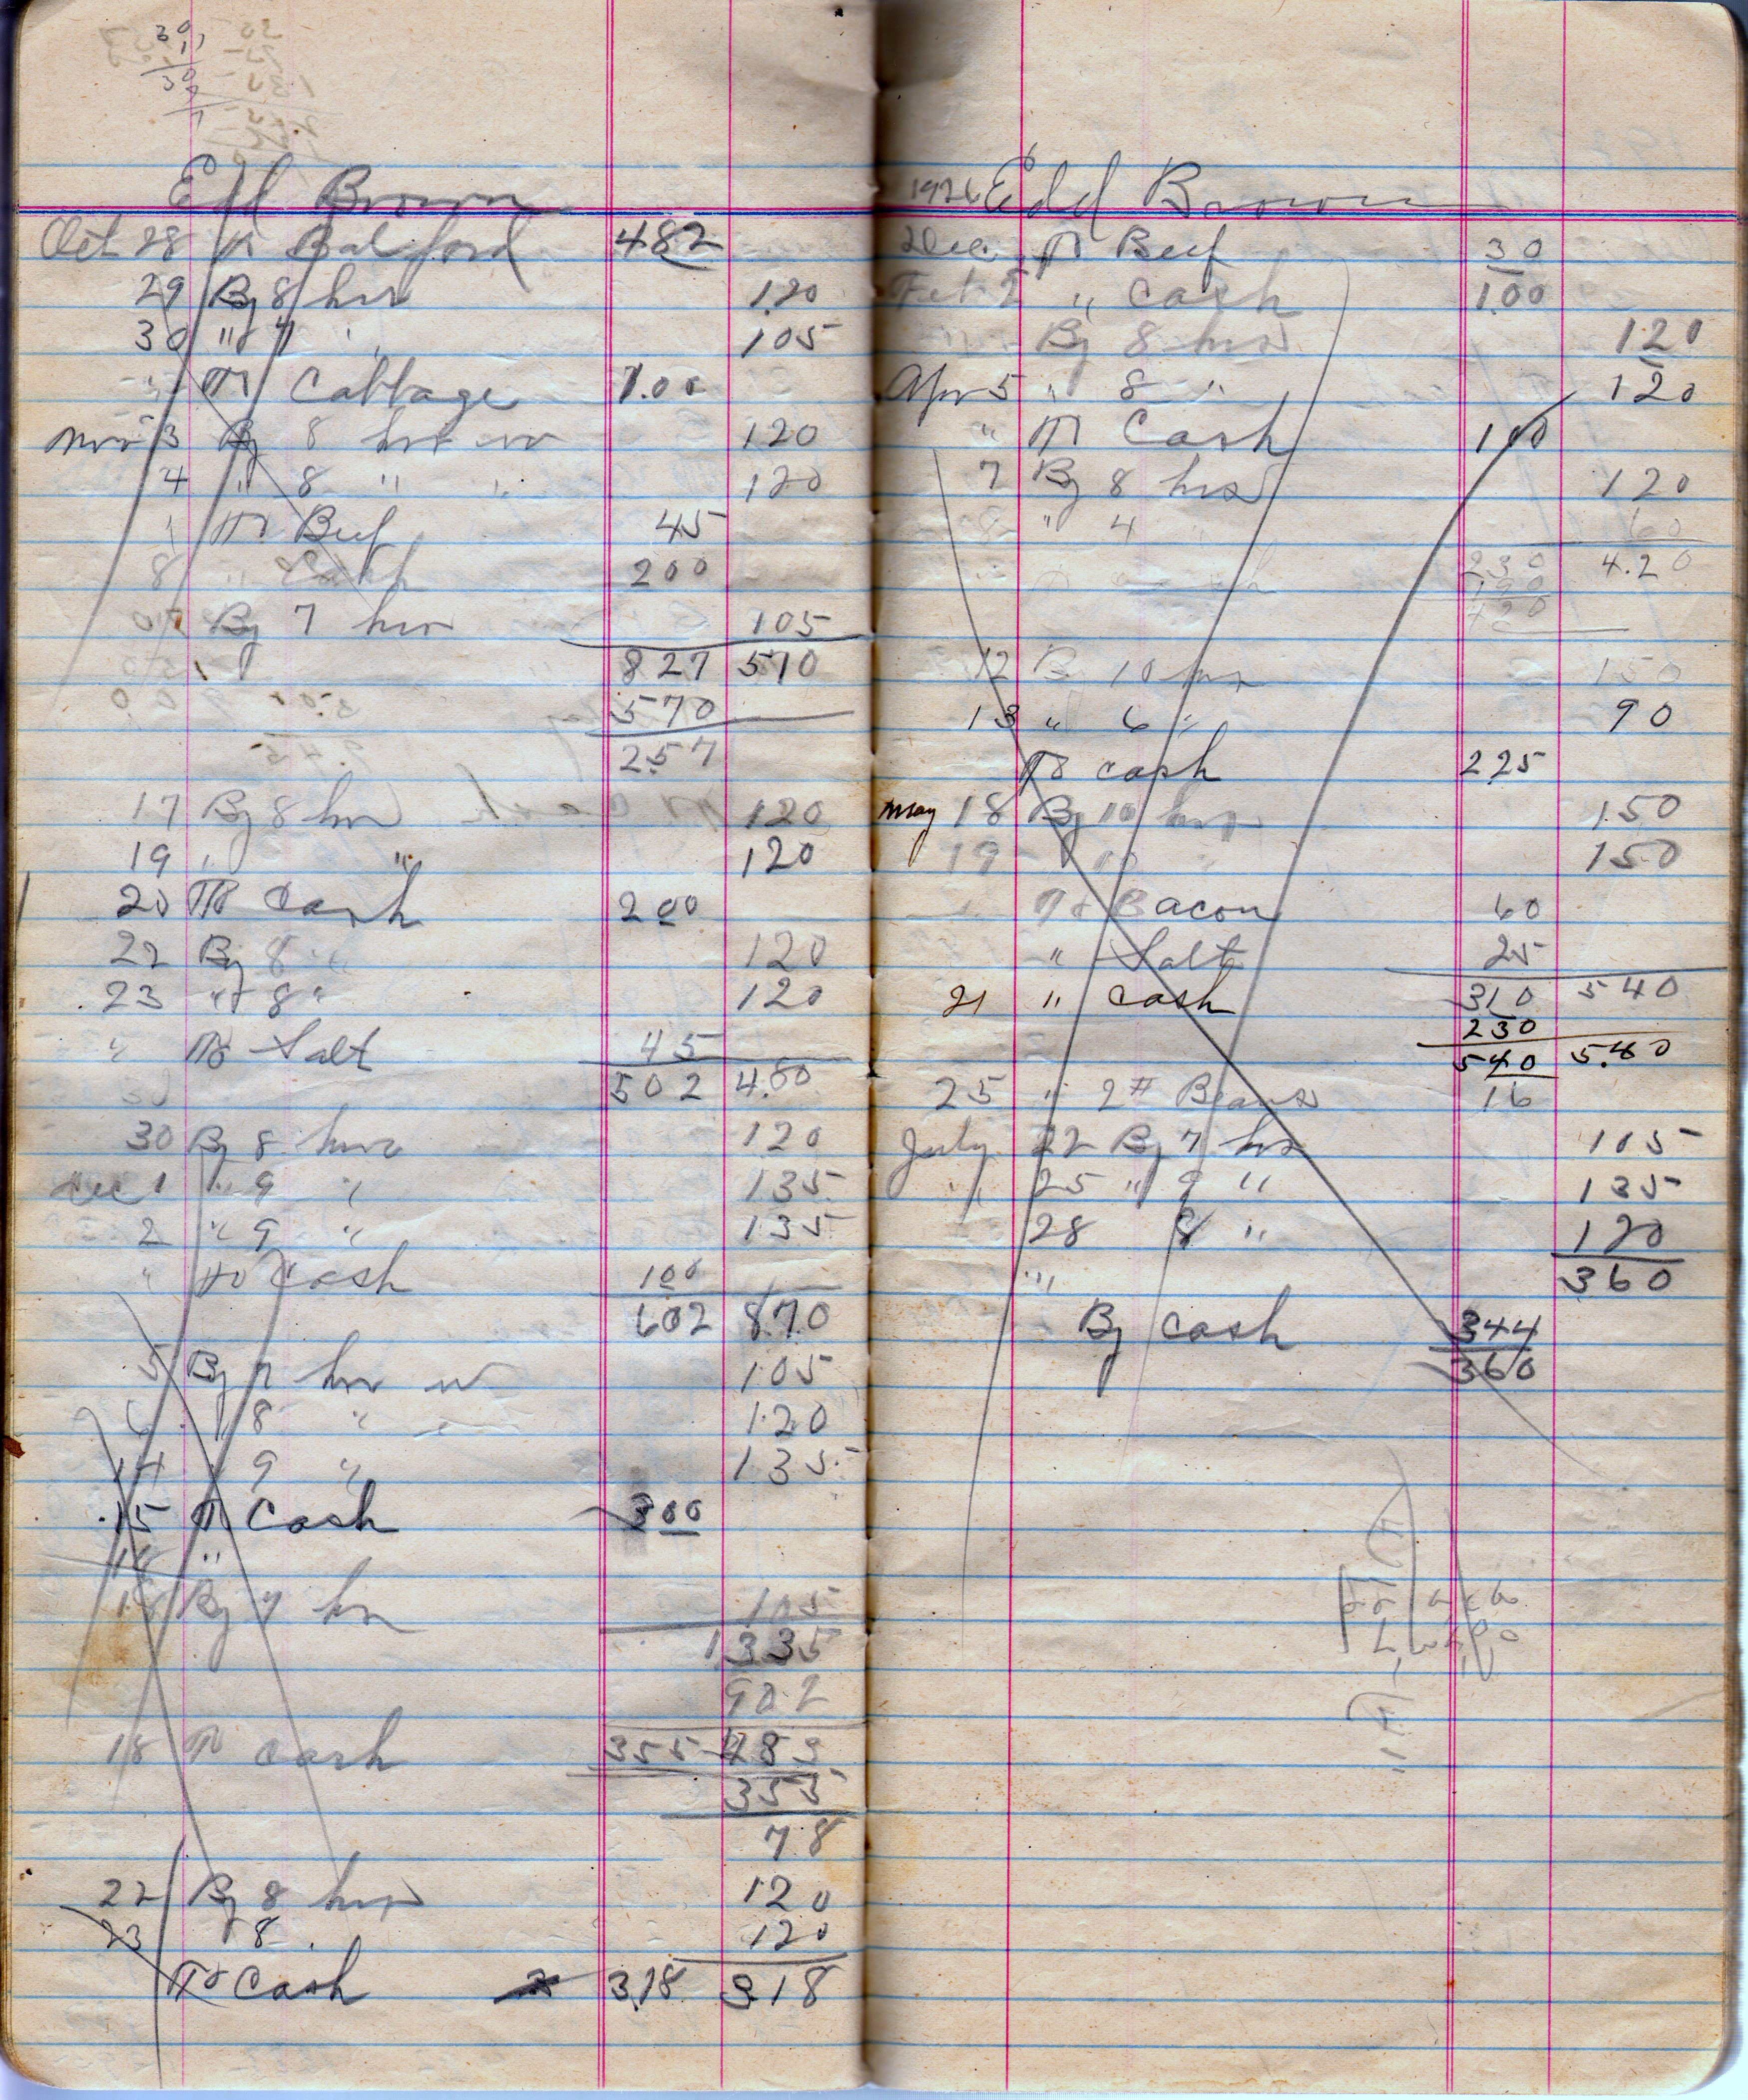 Edd Brown
Oct 28 To Balford 482
29 By 8 hrs 120
30 " 7 " 105
To Cabbage 1.00
Nov 3 By 8 hrs 120
4 " 8 " " 120
" To Beef 45
8 " Cash 200
By 7 hrs 105
827 570
570
257
17 By 8 hrs 120
19 " " 120
20 To Cash 200
22 By 8 " 120
23 " 8 " 120
" To Salt 45
502 4.80
30 By 8 hrs 120
Dec 1 " 9 " 135
2 " 9 " 135
" To Cash 100
602 870
5 By 7 hrs 105
6 8 " 120
14 9 " 135
15 To Cash 300
18 "
By 7 hrs 105
1335
902
18 To Cash 355 433
355
78
22 By 8 hrs 120
23 8 120
To Cash 318 318
1926 Edd Brown
Dec. To Beef 30
Feb " Cash 100
By 8 hrs 120
Apr 5 " 8 " 120
" To Cash 100
7 By 8 hrs 120
8 " 4 " 60
230 4.20
190
420
12 B 10 hrs 150
13 " 6 " 90
To Cash 225
May 18 By 10 hrs 150
19 10 " 150
To Bacon 60
" Salt 25
21 " Cash 310 540
230
540 5.40
25 " 2# Beans 16
July 22 By 7 hrs 105
" 25 " 9 " 135
28 8 " 120
" 360
By Cash 344
360